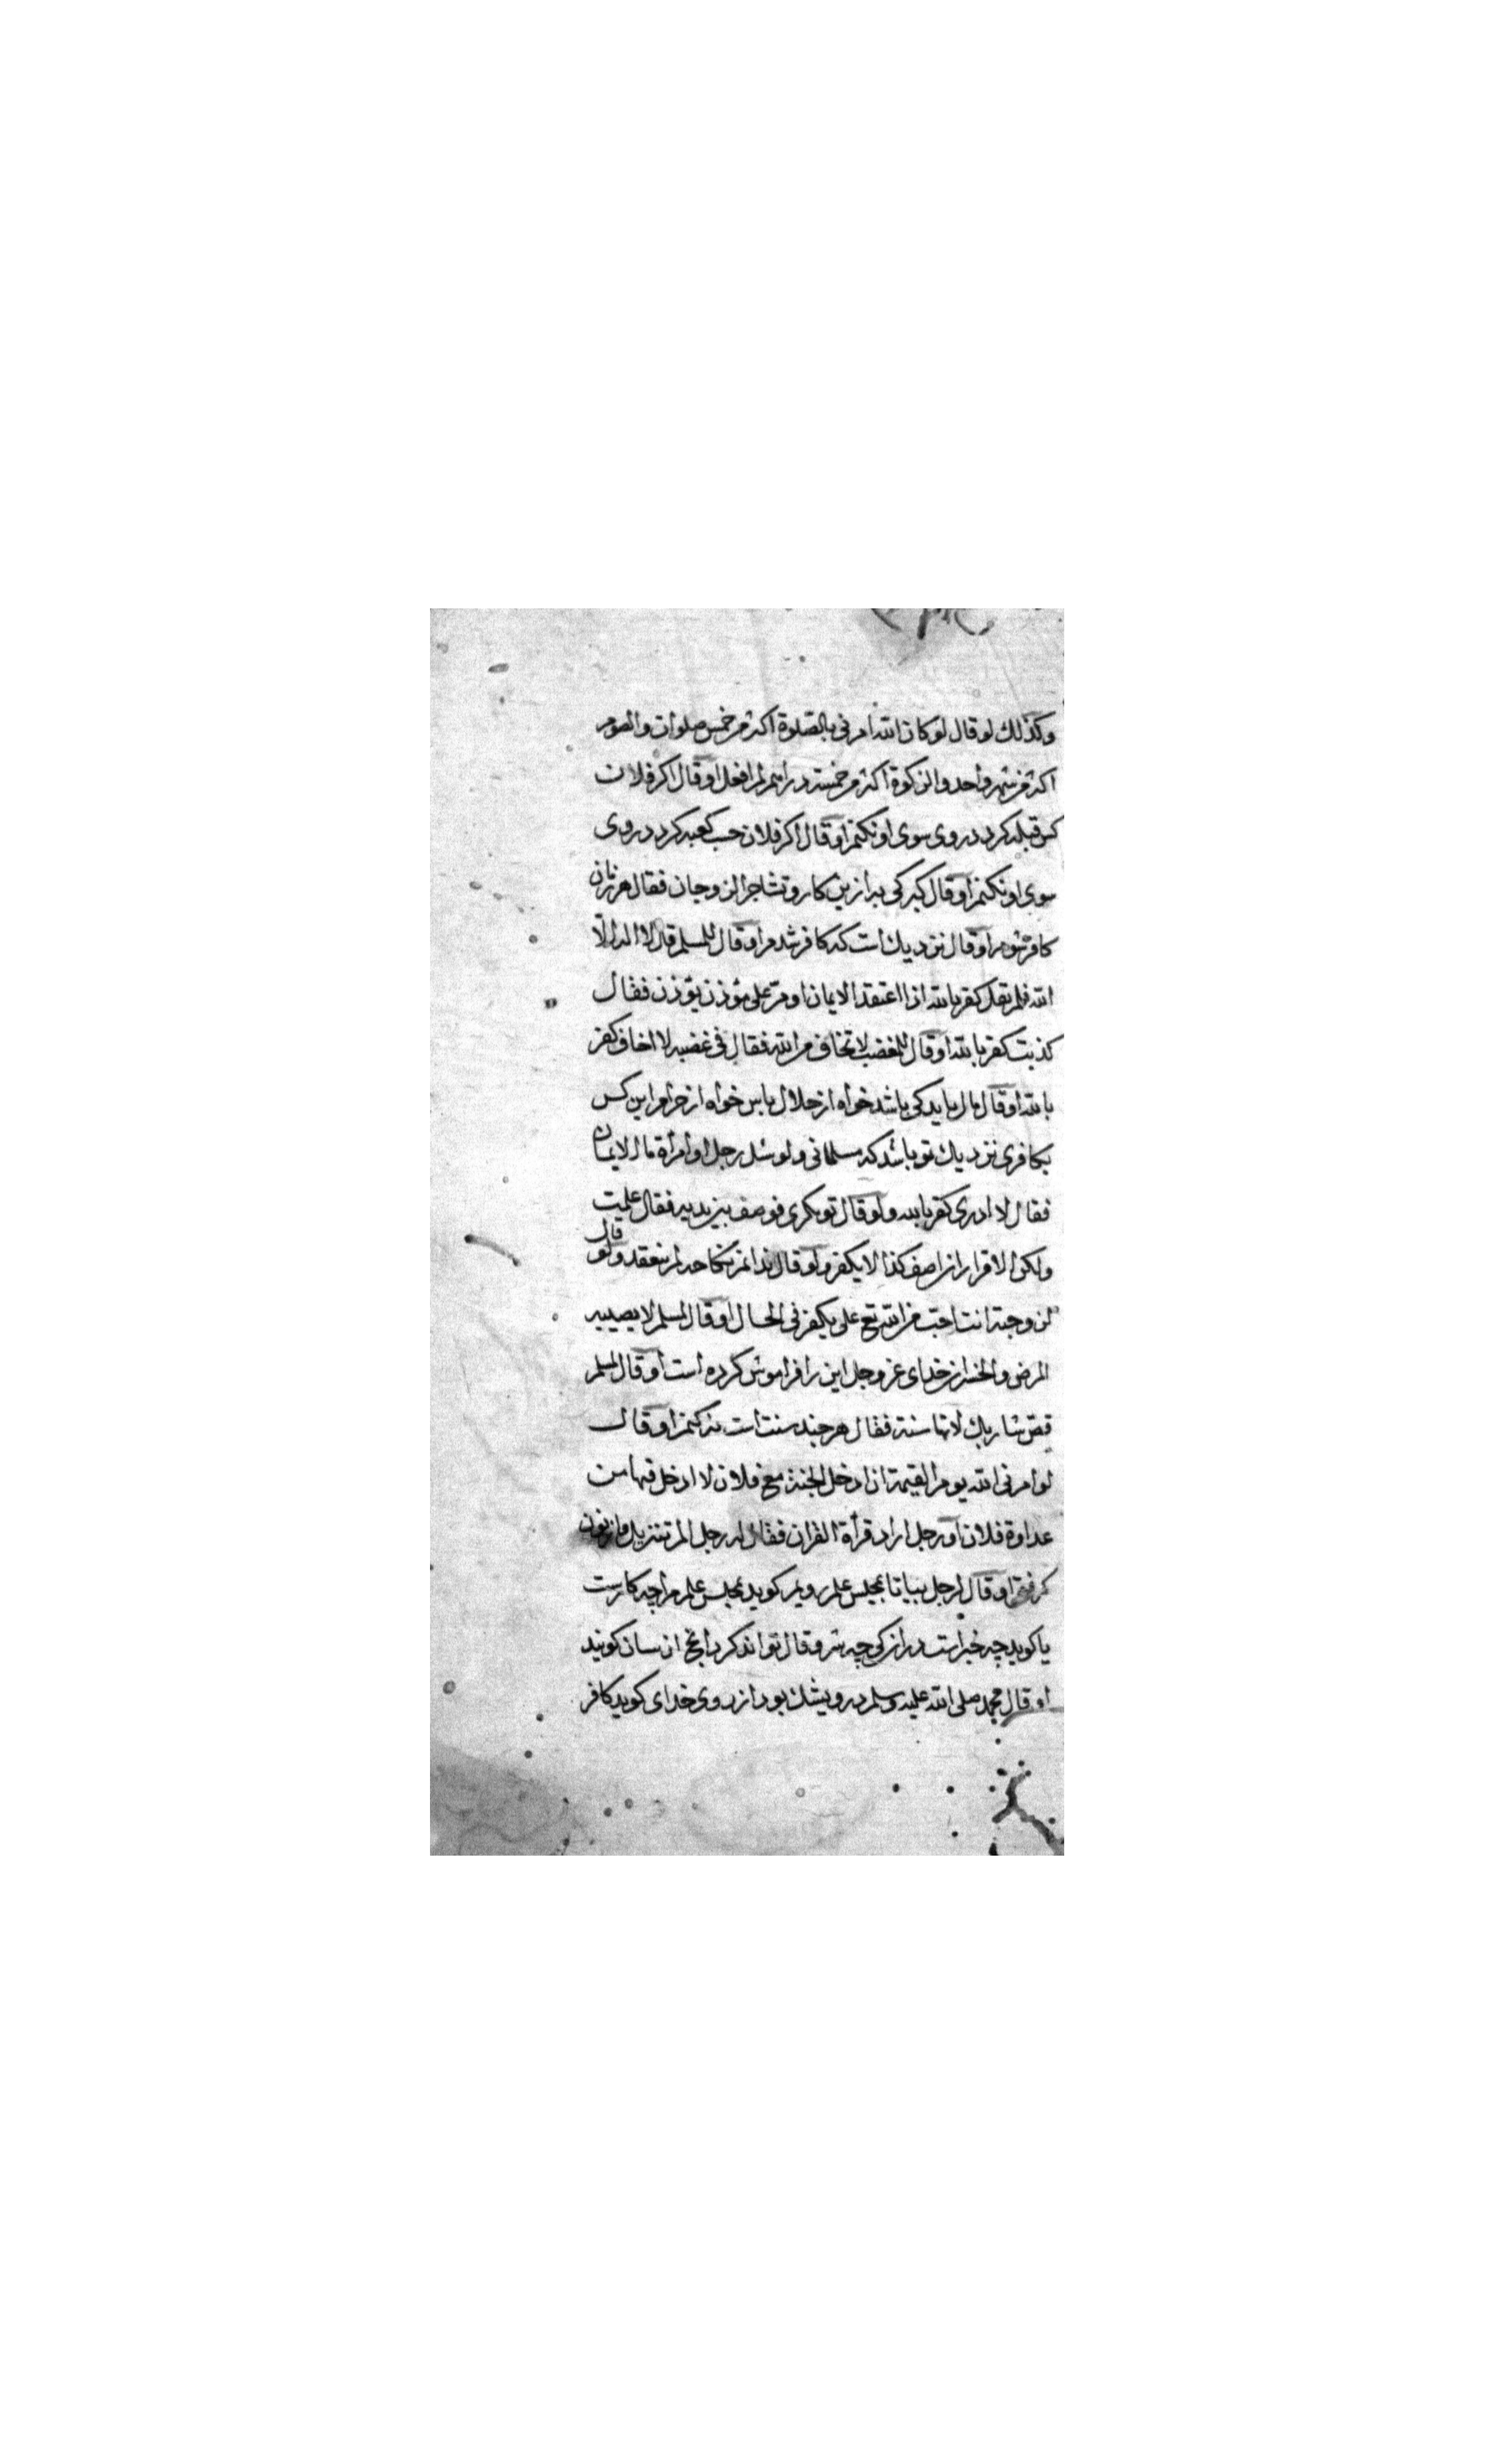 وكذلك لو قال لو كان الله امرني بالصلوة اكثر من خمس صلوات والصوم
اكثر من شهر واحد والزكوة اكثر من خمسة دراهم لم افعل او قال اكر فلان
كس قبله كردد روى سوى او نكنم او قال اكر فلان حب كعبه كردد روى
سوى او نكنم او قال كبركى به ازين كار وتشاجر الزوجان فقال هر زمان
كافر شوم او قال نزديك است كه كافر شدم او قال للمسلم قل لا اله الا
الله فلم يقل كفر بالله اذا اعتقد الايمان او مر على مؤذن يؤذن فقال
كذبت كفر بالله او قال للمغضب لا تخاف من الله فقال في غضبه لا اخاف كفر
بالله او قال مال بايد كى باشد خواه از حلال باس خواه از حرام اين كس
بكافرى نزديك تو باشد كه مسلمانى ولو سئل رجل او امرأة ما الايمان
فقال لا ادرى كفر بالله ولو قال فوصف بين يديه فقال علمت
ولكن لا اقرار ان اصف كذا لا يكفر ولو قال ندانم نكاحه لم ينعقد ولو قال
لزوجته انت احب من الله تع على يكفر في الحال او قال لمسلم لا يصيبه
المرض خداى عز وجل اين را فراموش كرده است او قال لمسلم
قص شاربك لانها سنة فقال هر چند سنت است نه كنم او قال
لو امرني الله يوم القيمة ان ادخل الجنة مع فلان لا ادخل فيها من
عداوة فلان او رجل اراد قرأة القران فقال له رجل الم تنزيل
كرفته او قال لرجل بيا تا بمجلس علم رويم كويد بمجلس علم مرا چه كارست
يا كويد چه خبر است وقال تواند كرد انچ ايسان كويند
او قال محمد صلى الله عليه وسلم درويشك بود از روى خداى كويد كافر